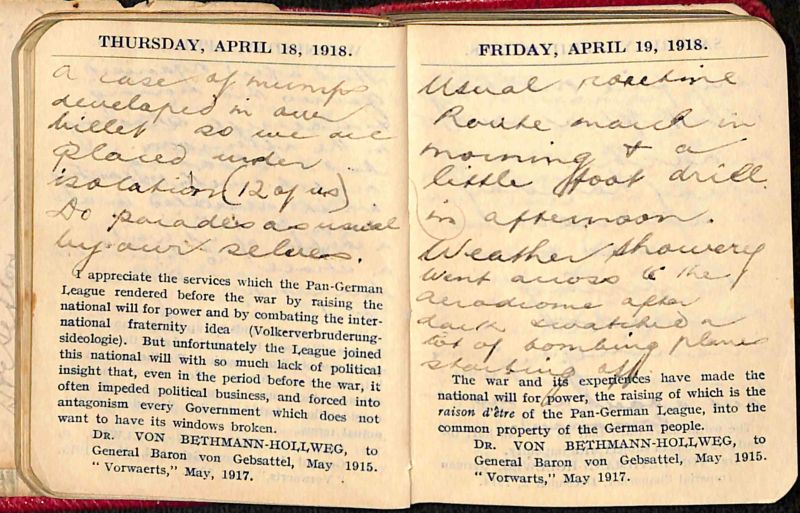 THURSDAY, APRIL 18, 1918.
A case of mumps
developed in our
billet so we are
placed under
isolation (12 of us)
Do parades as usual
by our selves.
I appreciate the services which the Pan-German
League rendered before the war by raising the
national will for power and by combating the inter-
national fraternity idea (Volkerverbruderung-
sideologie). But unfortunately the League joined
this national will with so much lack of political
insight that, even in the period before the war, it
often impeded political business, and forced into
antagonism every Government which does not
want to have its windows broken.
DR. VON BETHMANN-HOLLWEG, to
General Baron von Gebsattel, May 1915.
"Vorwaerts," May, 1917.
FRIDAY, APRIL 19, 1918.
Usual routine
Route march in
morning & a
little foot drill
in afternoon.
Weather showery
Went across to the
aerodrome after
dark & watched a
lot of bombing planes
starting off.
The war and its experiences have made the
national will for power, the raising of which is the
raison d'être of the Pan-German League, into the
common property of the German people.
DR. VON BETHMANN-HOLLWEG, to
General Baron von Gebsattel, May 1915.
"Vorwarts," May 1917.